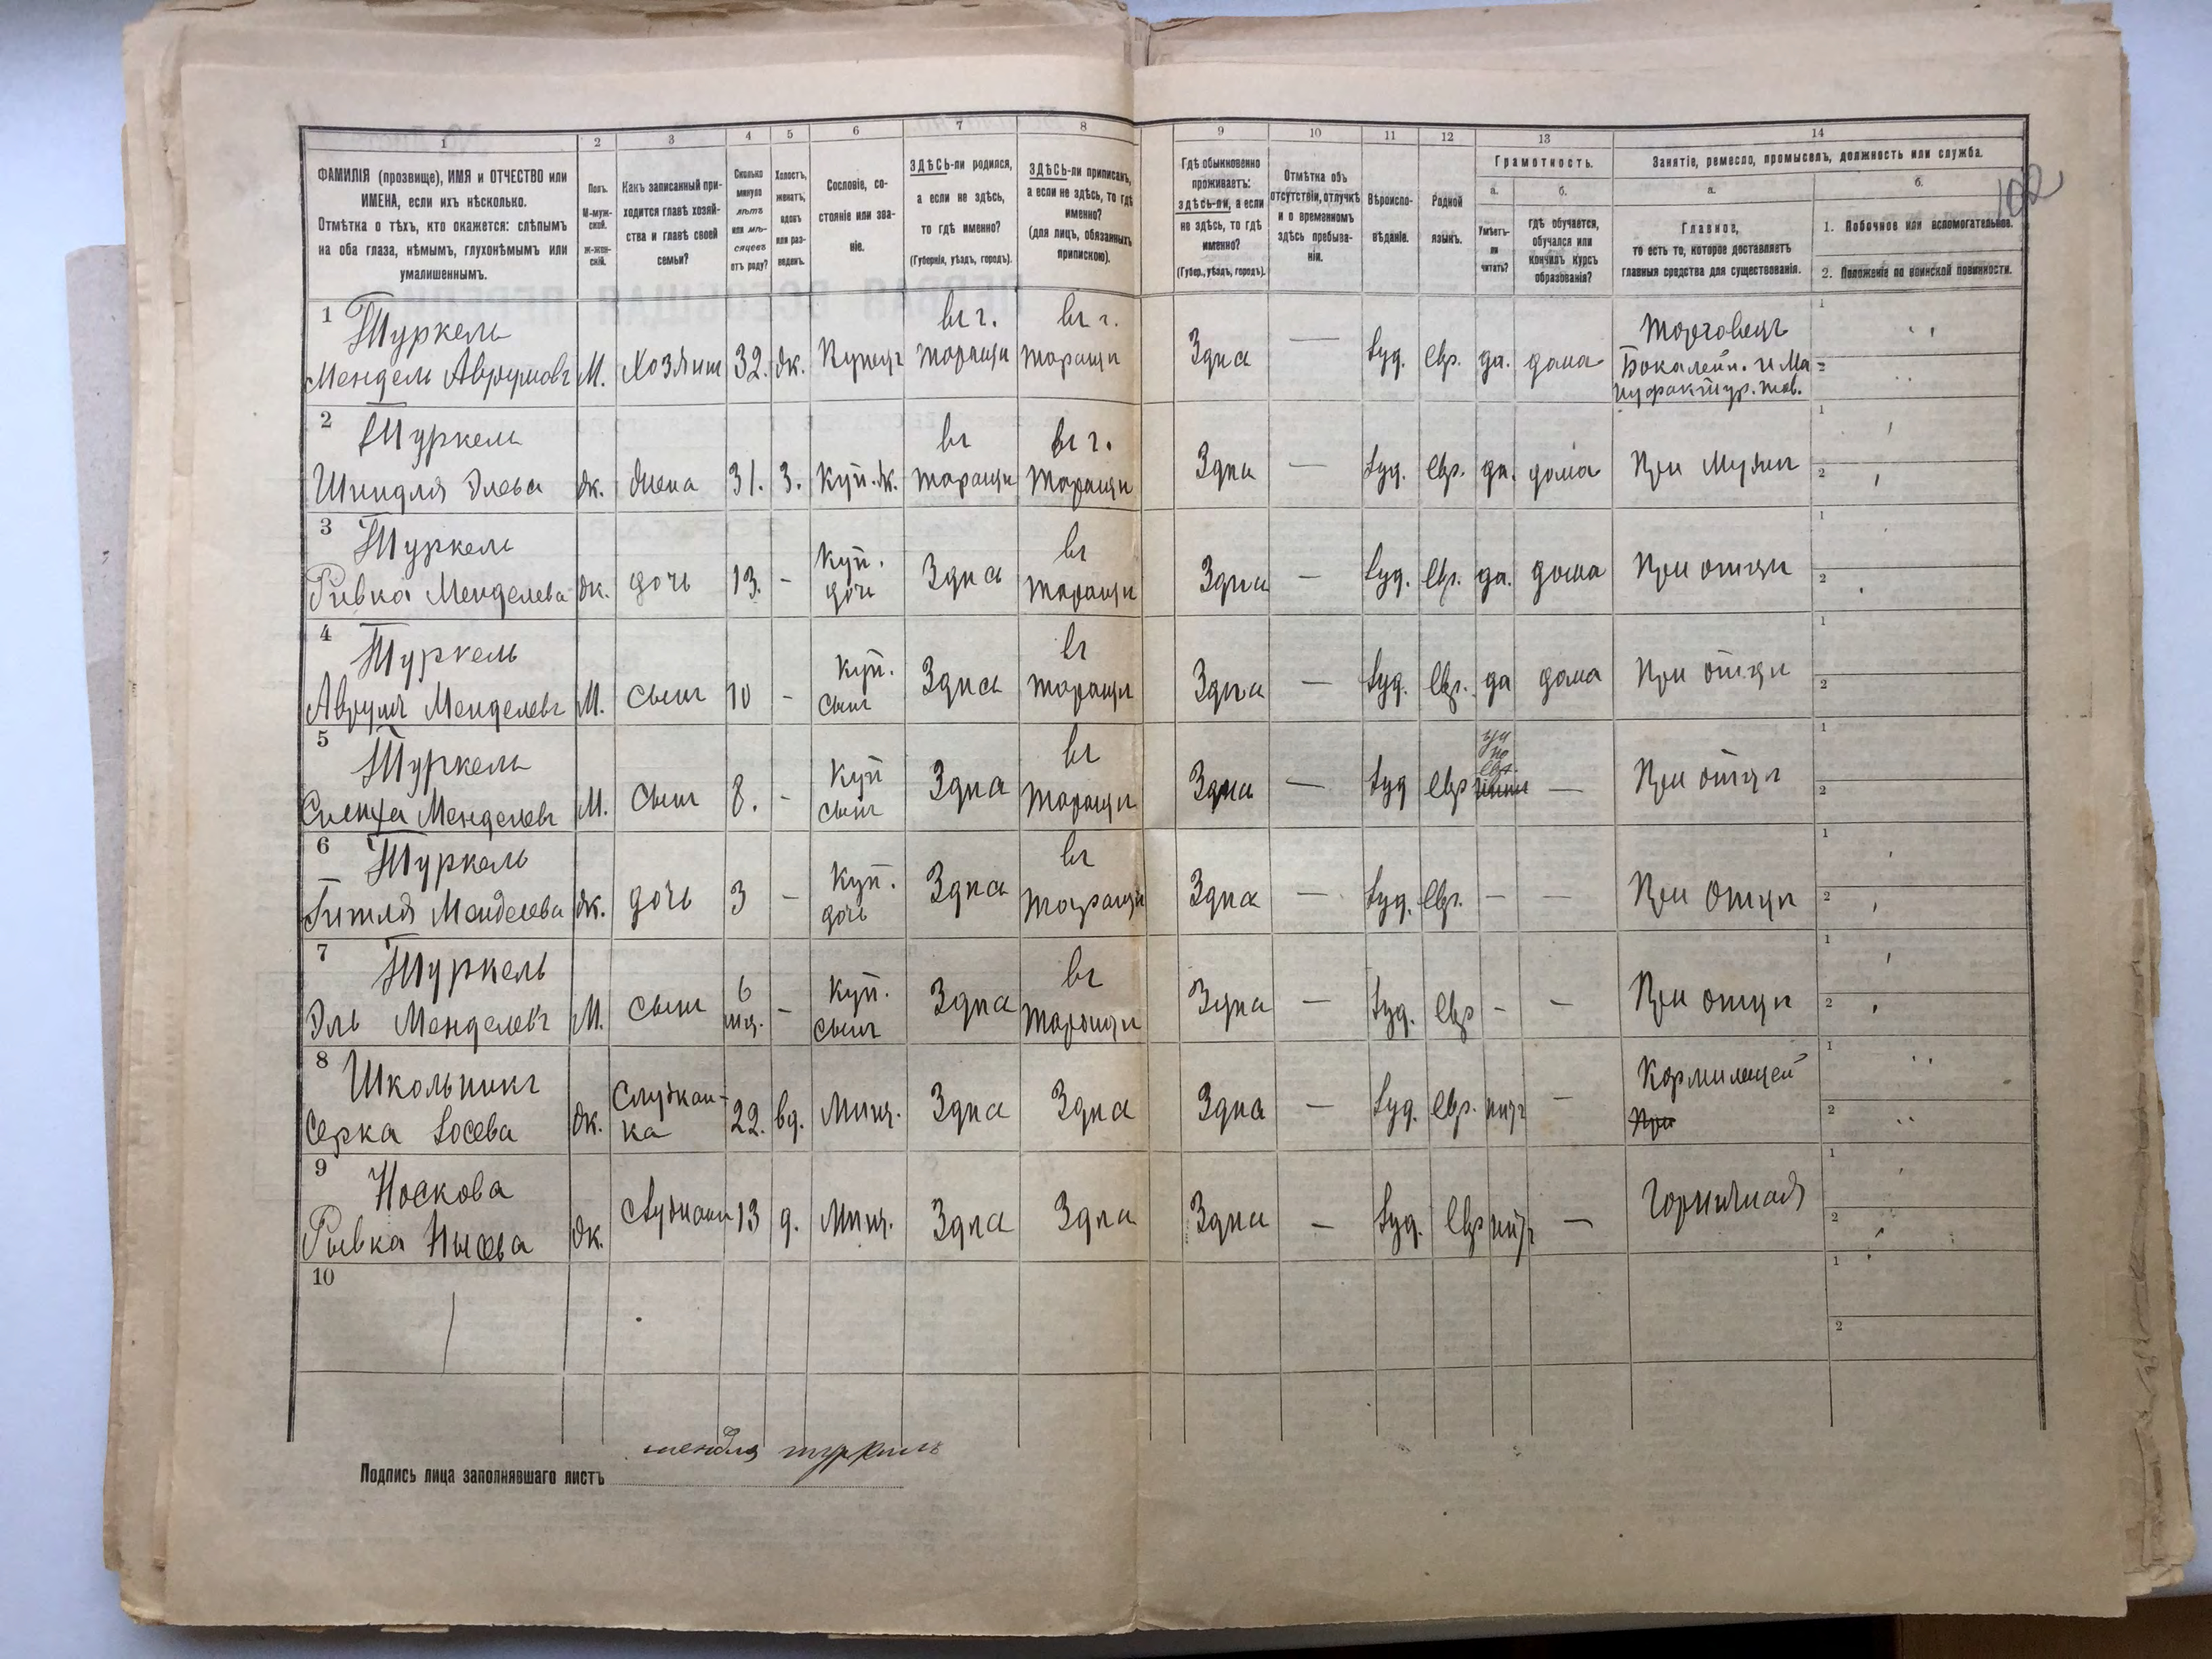 1 2 3 4 5 6 7 8 9 10 11 12 13 14
ФАМИЛІЯ (прозвище), ИМЯ и ОТЧЕСТВО или
ИМЕНА, если ихъ нѣсколько.
Отмѣтка о тѣхъ, кто окажется: слѣпымъ
на оба глаза, нѣмымъ, глухонѣмымъ или
умалишеннымъ.
Полъ.
М-муж-
ской.
Ж-жен-
скій.
Какъ записанный при-
ходится главѣ хозяй-
ства и главѣ своей
семьи?
Сколько
минуло
лѣтъ
или мѣ-
сяцевъ
отъ роду?
Холостъ,
женатъ,
вдовъ
или раз-
веденъ.
Сословіе, со-
стояніе или зва-
ніе.
ЗДѢСЬ-ли родился,
а если не здѣсь,
то гдѣ именно?
(Губернія, уѣздъ, городъ).
ЗДѢСЬ-ли приписанъ,
а если не здѣсь, то гдѣ
именно?
(для лицъ, обязанныхъ
припискою).
Гдѣ обыкновенно
проживаетъ:
здѣсь-ли, а если
не здѣсь, то гдѣ
именно?
(Губер., уѣздъ, городъ).
Отмѣтка объ
отсутствіи, отлучкѣ
и о временномъ
здѣсь пребыва-
ніи.
Вѣроиспо-
вѣданіе.
Родной
языкъ.
Грамотность.
а.
Умѣетъ-
ли
читать?
б.
гдѣ обучается,
обучался или
кончилъ курсъ
образованія?
Занятіе, ремесло, промыселъ, должность или служба.
а.
Главное,
то есть то, которое доставляетъ
главныя средства для существованія.
б.
1. Побочное или вспомогательное.
2. Положеніе по воинской повинности.
102
1 Туркель вг г. вг г. Торговецъ
Мендель Аврумовъ М. Хозяин 32. ж. Купецъ Таращи Таращи Здѣсь — Іуд. евр. да. дома Бакалейн. и Ма
нуфактур. тов.
2 Туркель вг вг г.
Шиндля Элева ж. жена 31. З. Куп. ж. Таращи Таращи Здѣсь — Іуд. евр. да. дома При мужи
3 Туркель Куп. вг
Ривка Менделева ж. дочь 13. - дочь Здѣсь Таращи Здѣсь — Іуд. евр. да. дома При отци
4 Туркель Куп. вг
Аврумъ Менделевъ М. Сынъ 10 - сынъ Здѣсь Таращи Здѣсь — Іуд. евр. да дома При отци
5 Туркель Куп вг
Менделевъ М. Сынъ 8. - сынъ Здѣсь Таращи Здѣсь — Іуд евр по евр. — При отци
6 Туркель Куп. вг
Гитля Менделева ж. дочь 3 - дочь Здѣсь Таращи Здѣсь — Іуд. евр. - — При отци
7 Туркель 6 Куп. вг
Эль Менделевъ М. Сынъ мѣс. - сынъ Здѣсь Таращи Здѣсь — Іуд. евр - — При отци
8 Школьникъ Служан- Кормилицей
Серка Іосева ж. ка 22. вд. Мѣщ. Здѣсь Здѣсь Здѣсь — Іуд. евр. нѣтъ - При
9 Носкова Горничная
Рывка Нысева ж. служанк 13 д. Мѣщ. Здѣсь Здѣсь Здѣсь — Іуд. евр нѣтъ —
10
мендль туркиль
Подпись лица заполнявшаго листъ